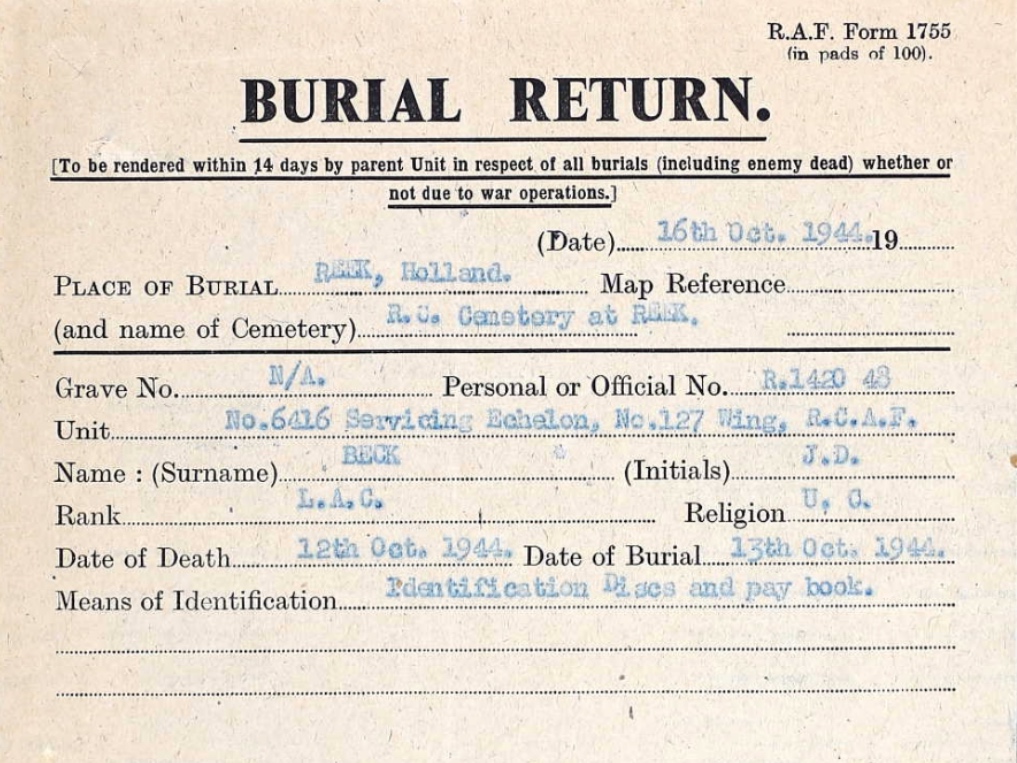 R.A.F. Form 1755
(in pads of 100).
BURIAL RETURN.
[To be rendered within 14 days by parent Unit in respect of all burials (including enemy dead) whether or
not due to war operations.]
(Date) 16th Oct. 1944. 19
PLACE OF BURIAL REEK, Holland. Map Reference
(and name of Cemetery) R.C. Cemetery at REEK.
Grave No. N/A. Personal or Official No. R.1420 48
Unit No.6416 Servicing Echelon, No.127 Wing, R.C.A.F.
Name : (Surname) BECK (Initials) J.D.
Rank L.A.C. Religion U. C.
Date of Death 12th Oct. 1944. Date of Burial 13th Oct. 1944.
Means of Identification Identification Discs and pay book.